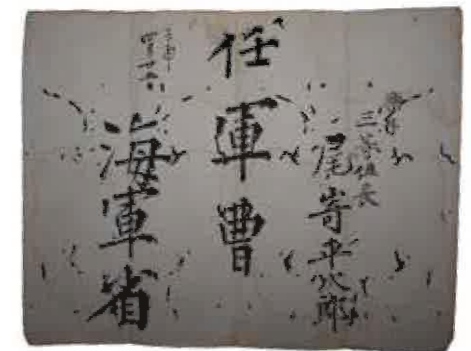 三等伍長
尾嵜平八郎
任軍曹
海軍省